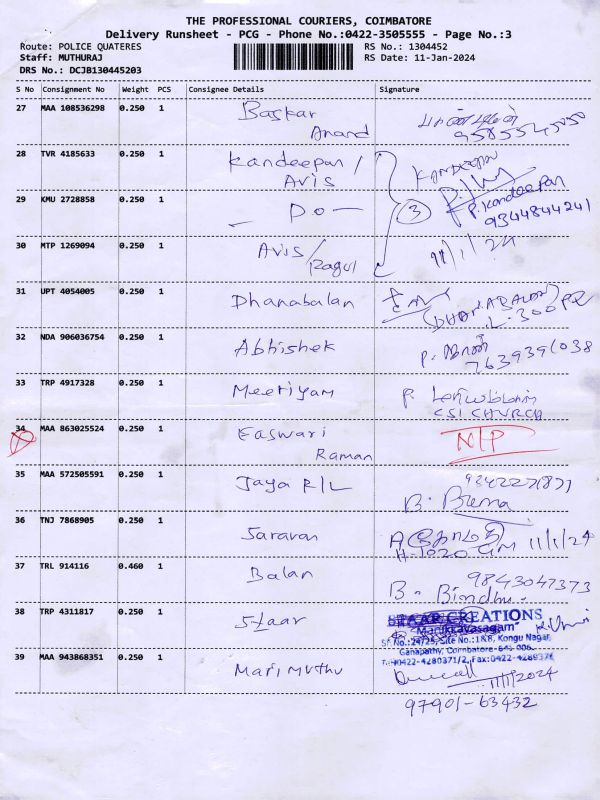 THE PROFESSIONAL COURIERS, COIMBATORE
Delivery Runsheet - PCG - Phone No.:0422-3505555 - Page No.:3
Route: POLICE QUATERES RS No.: 1304452
Staff: MUTHURAJ RS Date: 11-Jan-2024
DRS No.: DCJB130445203
S No Consignment No Weight PCS Consignee Details Signature
27 MAA 108536298 0.250 1 Baskar
Anand 9585545050
28 TVR 4185633 0.250 1 Kandeepan / Kandeepan
Avis
29 KMU 2728858 0.250 1 - Do - 3 P. Kandeepan
9344844241
30 MTP 1269094 0.250 1 Avis/ 11/1/24
Ragul
31 UPT 4054005 0.250 1 Dhanabalan
(DHANABALAN)
32 NDA 906036754 0.250 1 Abhishek
7639391038
33 TRP 4917328 0.250 1 Meeriyam
CSI CHURCH
34 MAA 863025524 0.250 1 Easwari N/P
Raman
35 MAA 572505591 0.250 1 Jaya R/L
B. Buma
36 TNJ 7868905 0.250 1 Saravan
11/1/24
37 TRL 914116 0.460 1 Balan 9843047373
B. Bindhu
38 TRP 4311817 0.250 1 Staar STAAR CREATIONS
"Manikavasagam"
SF No.:24/25, Site No.:1KB, Kongu Nagar
Ganapathy, Coimbatore-641 006.
39 MAA 943868351 0.250 1 Mari Muthu
11/1/2024
97901-63432